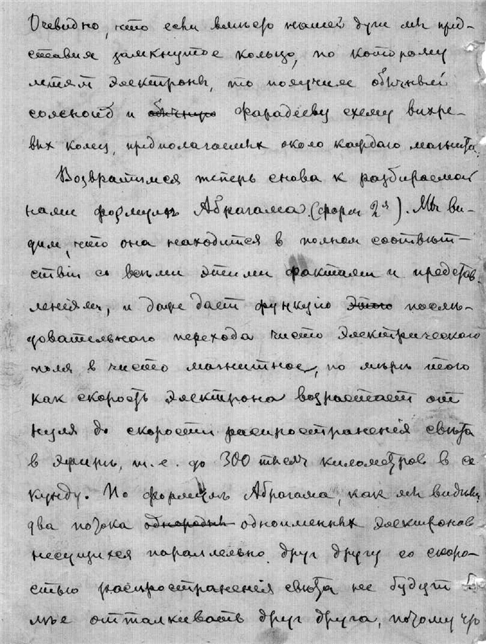 Очевидно, что если вместо нашей дуги мы пред-
ставим замкнутое кольцо, по которому
летят электроны, то получим обычный
соленоид и обычную фарадееву схему вихре-
вых колец, предполагаемых около каждаго магнита.
Возвратимся теперь снова к разбираемой
нами формулѣ Абрагама (форм 2я). Мы ви-
дим, что она находится в полном соотвѣт-
ствіи со всѣми этими фактами и представ-
леніями, и даже дает функцію этого послѣ-
довательнаго перехода чисто электрическаго
поля в чисто магнитное, по мѣрѣ того
как скорость электрона возрастает от
нуля до скорости распространенія свѣта
в эфирѣ, т. е. до 300 тысяч километров в се
кунду. По формулѣ Абрагама, как мы видим,
два потока одноименных электронов
несущихся параллельно друг другу со скоро-
стью распространенія свѣта не будут бо
лѣе отталкивать друг друга, потому что